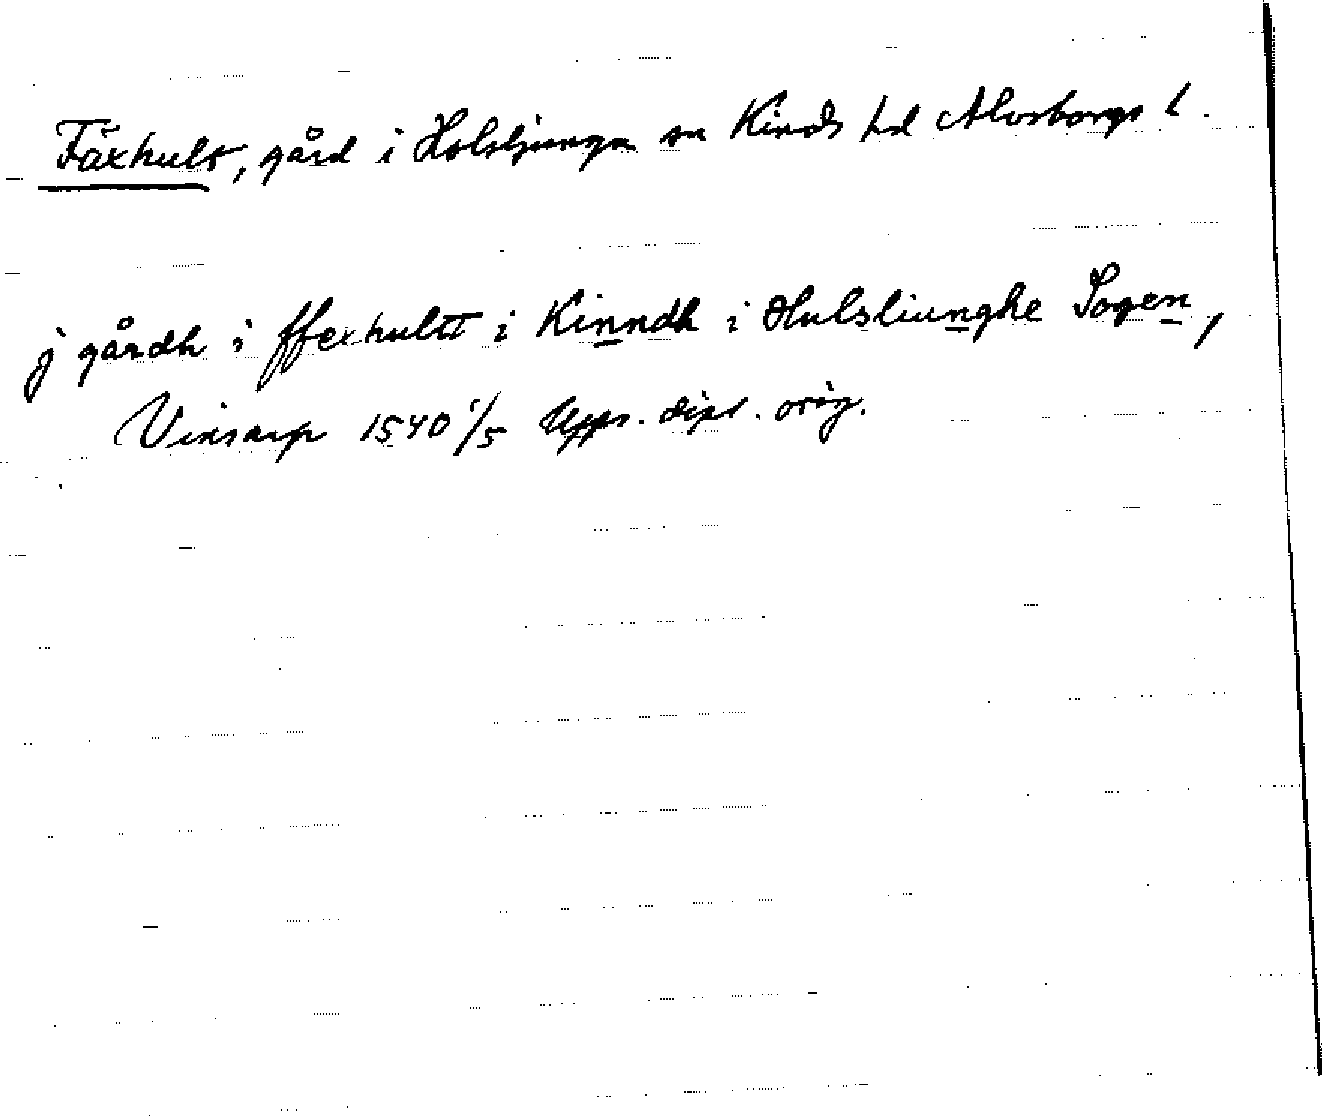 Fäxhult, gård i Holsljunga sn Kinds hd Älvsborgs l.
j gårdh i ffexhultt i Kinndh i Hulsliunghe Sogen,
Vinsarp 1540 1/5 Upps. dipl. orig.